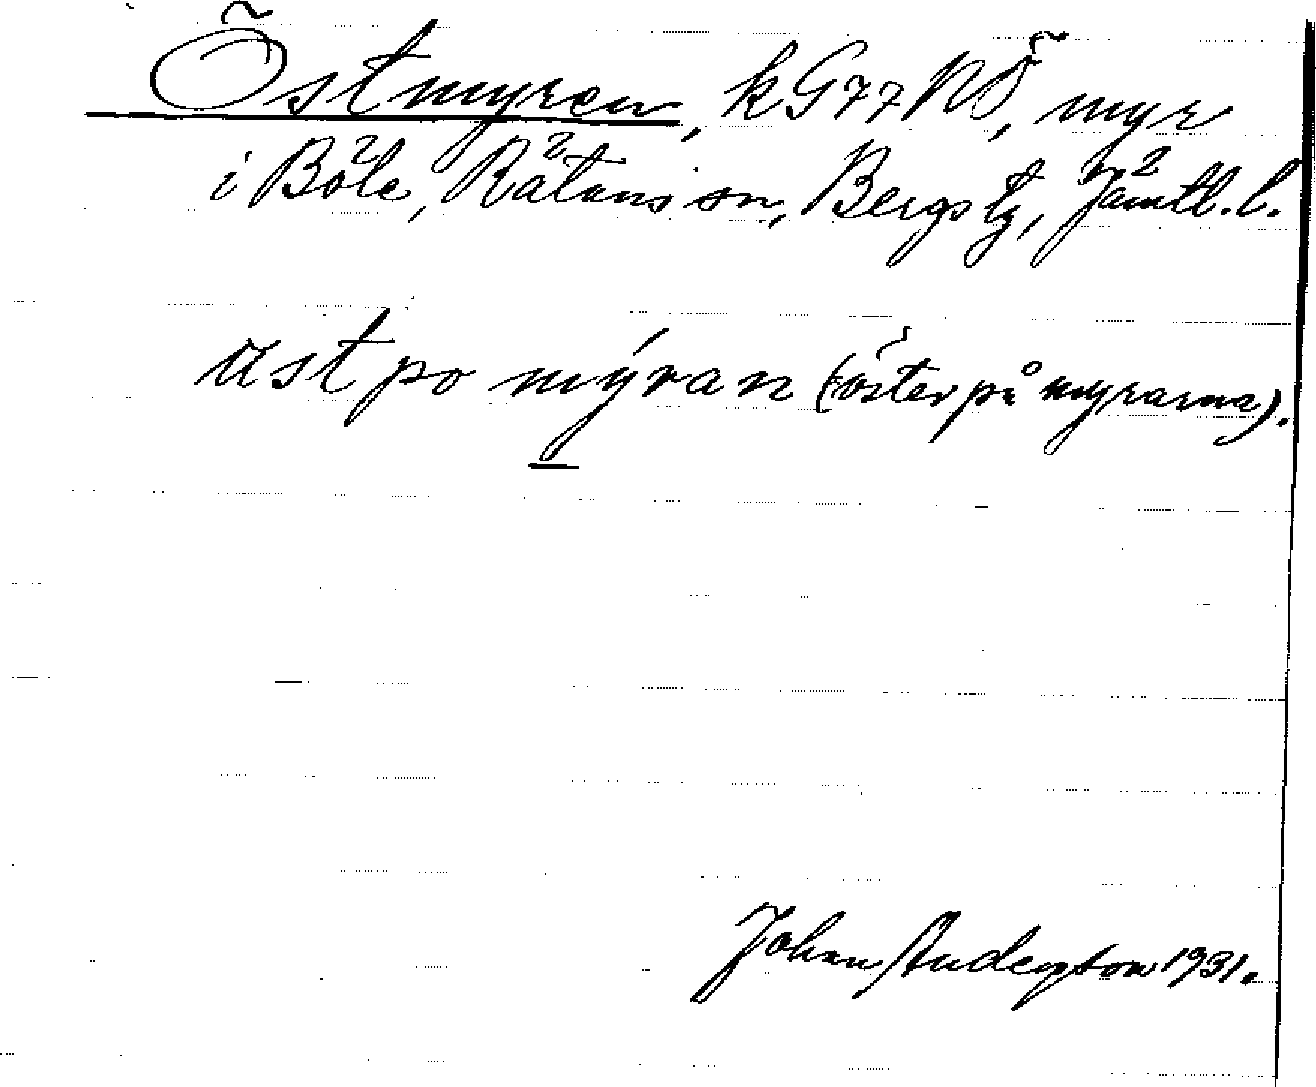 Östmyren, k G77 NÖ, myr
i Böle, Rätans sn, Bergs tg, Jämtl. l.
ust po mýran (öster på myrarna).
Johan Andersson 1931.